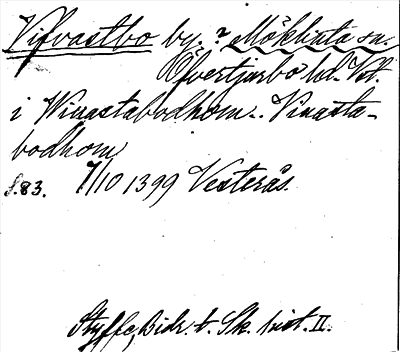 Vifvastbo by? Möklinta sn.
Öfvertjurbo hd. Vstl.
i Winastabodhom.. Vinasta-
bodhom
s. 83. 7/10 1399 Vesterås.
Styffe, Bidr. t. Sk. hist. II.